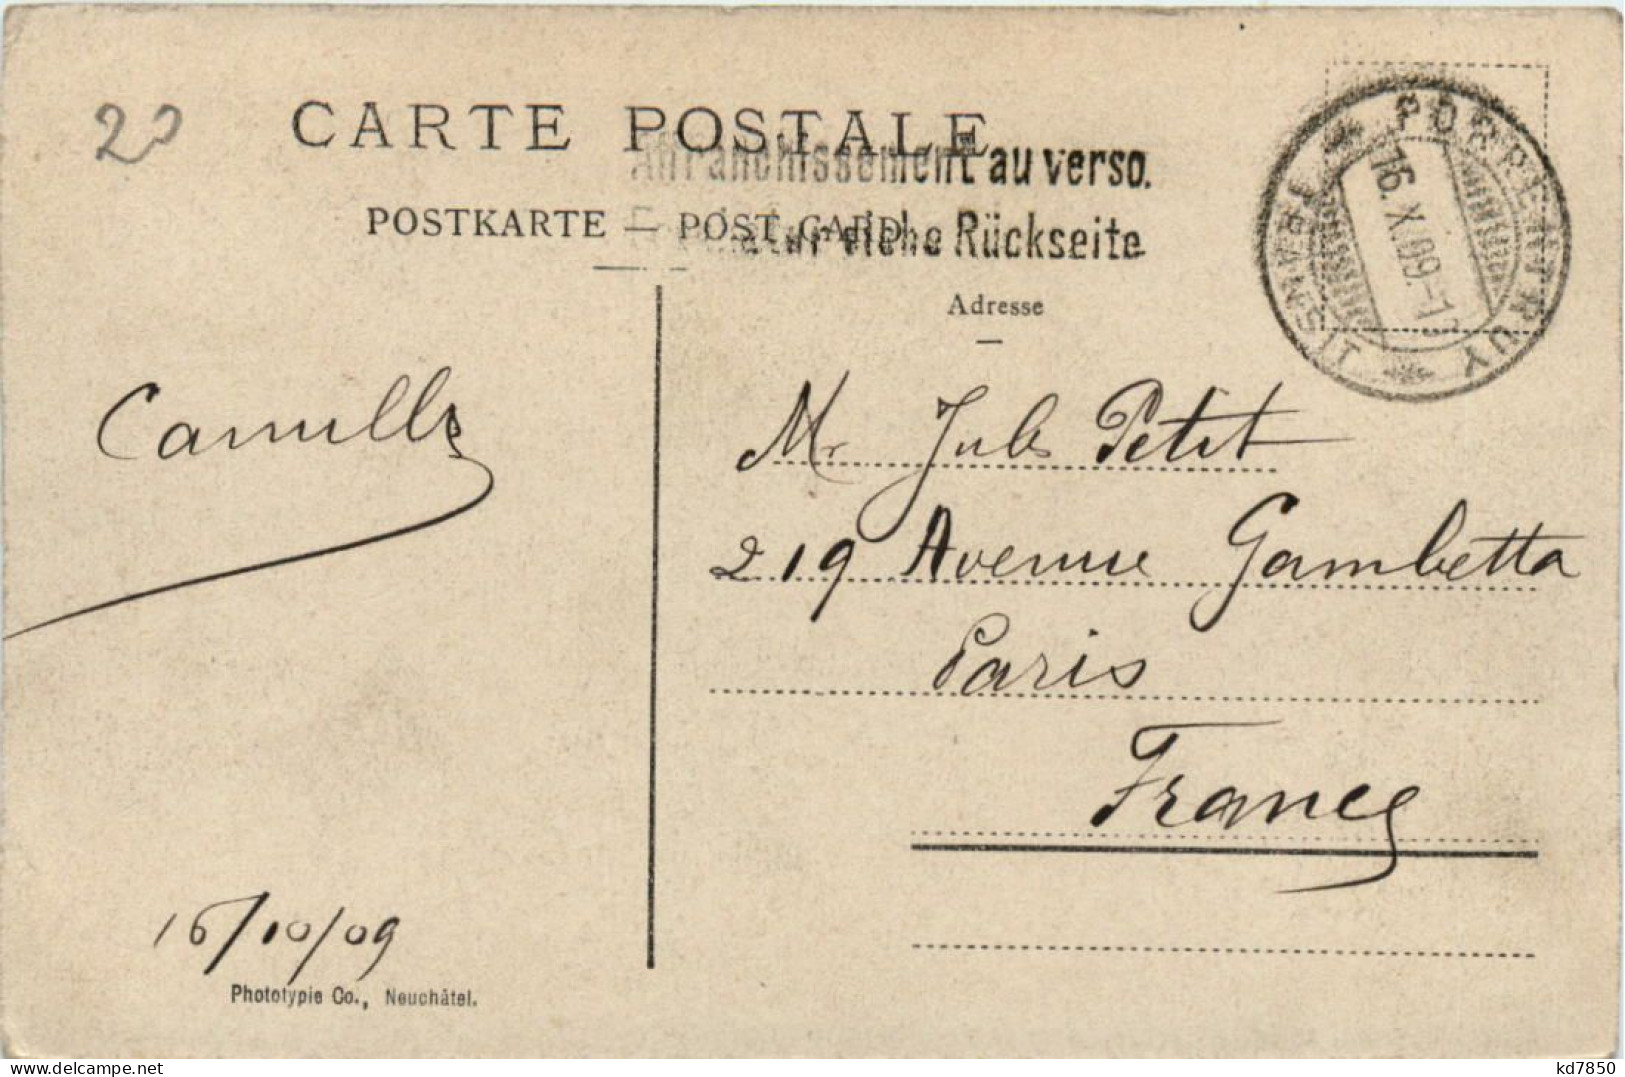 20
CARTE POSTALE
Affranchissement au verso.
POSTKARTE — POST CARD
siehe Rückseite
PORRENTRUY
TRANSIT
16.X.09.-1
Adresse
Camille
Mr Jules Petit
219 Avenue Gambetta
Paris
France
16/10/09
Phototypie Co., Neuchâtel.
kd7850